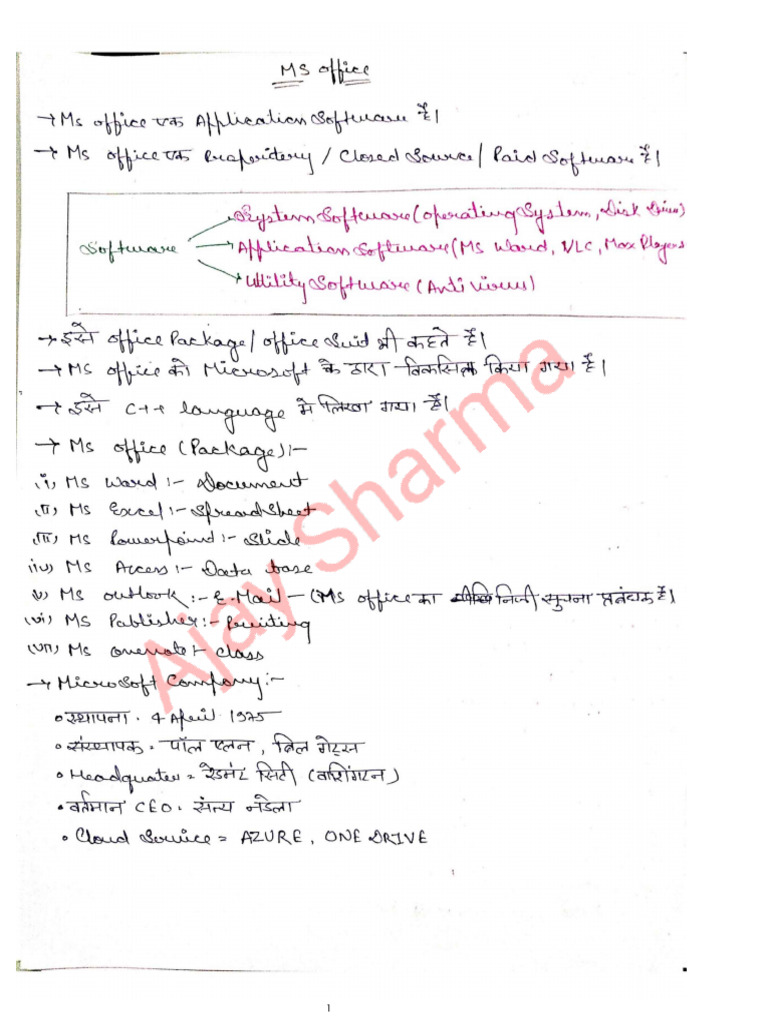 MS office
→ Ms office एक Application Software है।
→ Ms office एक Properitery / Closed Source / Paid Software है।
System Software (operating System, Disk Driver)
Software → Application Software (Ms Word, VLC, Max Players
Utility Software (Anti virus)
→ इसे office Package / office Suid भी कहते हैं।
→ Ms office को Microsoft के द्वारा विकसित किया गया है।
→ इसे C++ language मे लिखा गया है।
→ Ms office (Package) :-
(i) MS Word :- Document
(ii) MS Excel :- SpreadSheet
(iii) MS Powerpoint :- Slide
(iv) MS Access :- Data base
(v) MS outlook :- E-Mail - (Ms office का निजी सुचना प्रबंधक है।
(vi) MS Publisher :- Printing
(vii) Ms onenote :- class
→ MicroSoft Company :-
• स्थापना - 4 April 1975
• संस्थापक = पॉल एलन, बिल गेट्स
• Headquater = रेडमंट सिटी (वाशिंगटन)
• वर्तमान CEO - सत्य नडेला
• Cloud Service = AZURE, ONE DRIVE
Ajay Sharma
1
1